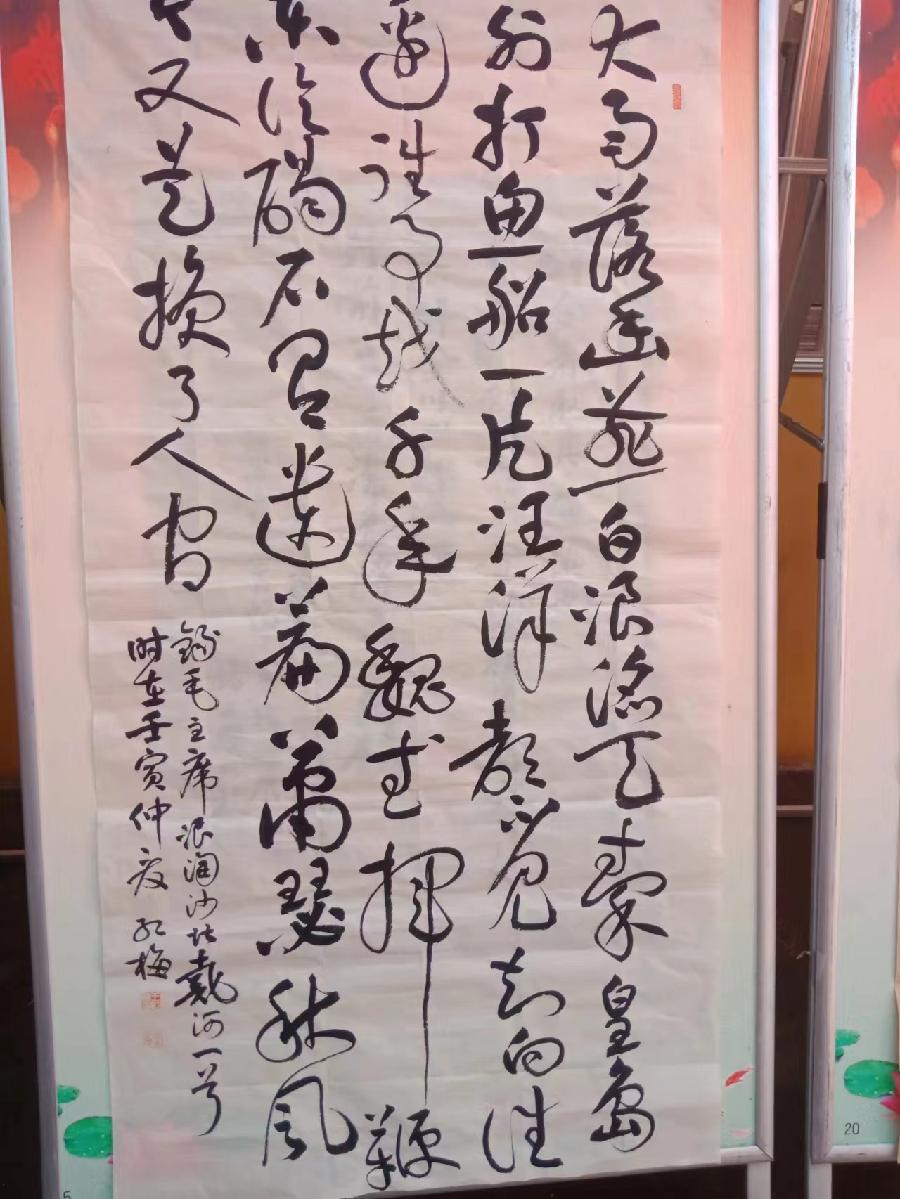 大雨落幽燕白浪滔天秦皇島
外打魚船一片汪洋都不見知向谁
邊往事越千年魏武揮鞭
东临碣石有遗篇萧瑟秋风
今又是换了人间
錄毛主席浪淘沙北戴河一首
时在壬寅仲夏 红梅
5
20